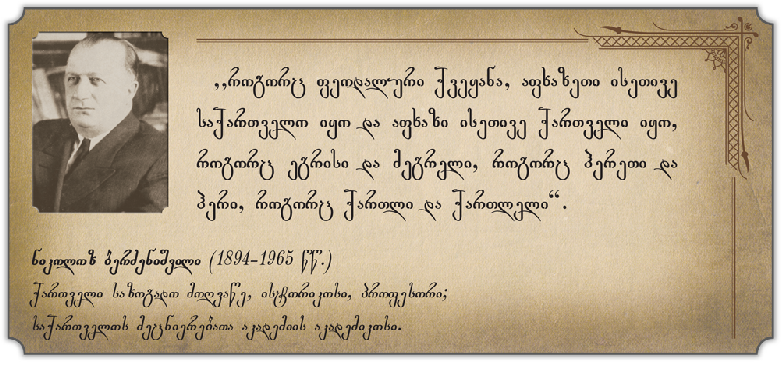 ,,როგორც ფეოდალური ქვეყანა, აფხაზეთი ისეთივე
საქართველო იყო და აფხაზი ისეთივე ქართველი იყო,
როგორც ეგრისი და მეგრელი, როგორც ჰერეთი და
ჰერი, როგორც ქართლი და ქართლელი“.
ნიკოლოზ ბერძენიშვილი (1894-1965 წწ.)
ქართველი საზოგადო მოღვაწე, ისტორიკოსი, პროფესორი;
საქართველოს მეცნიერებათა აკადემიის აკადემიკოსი.